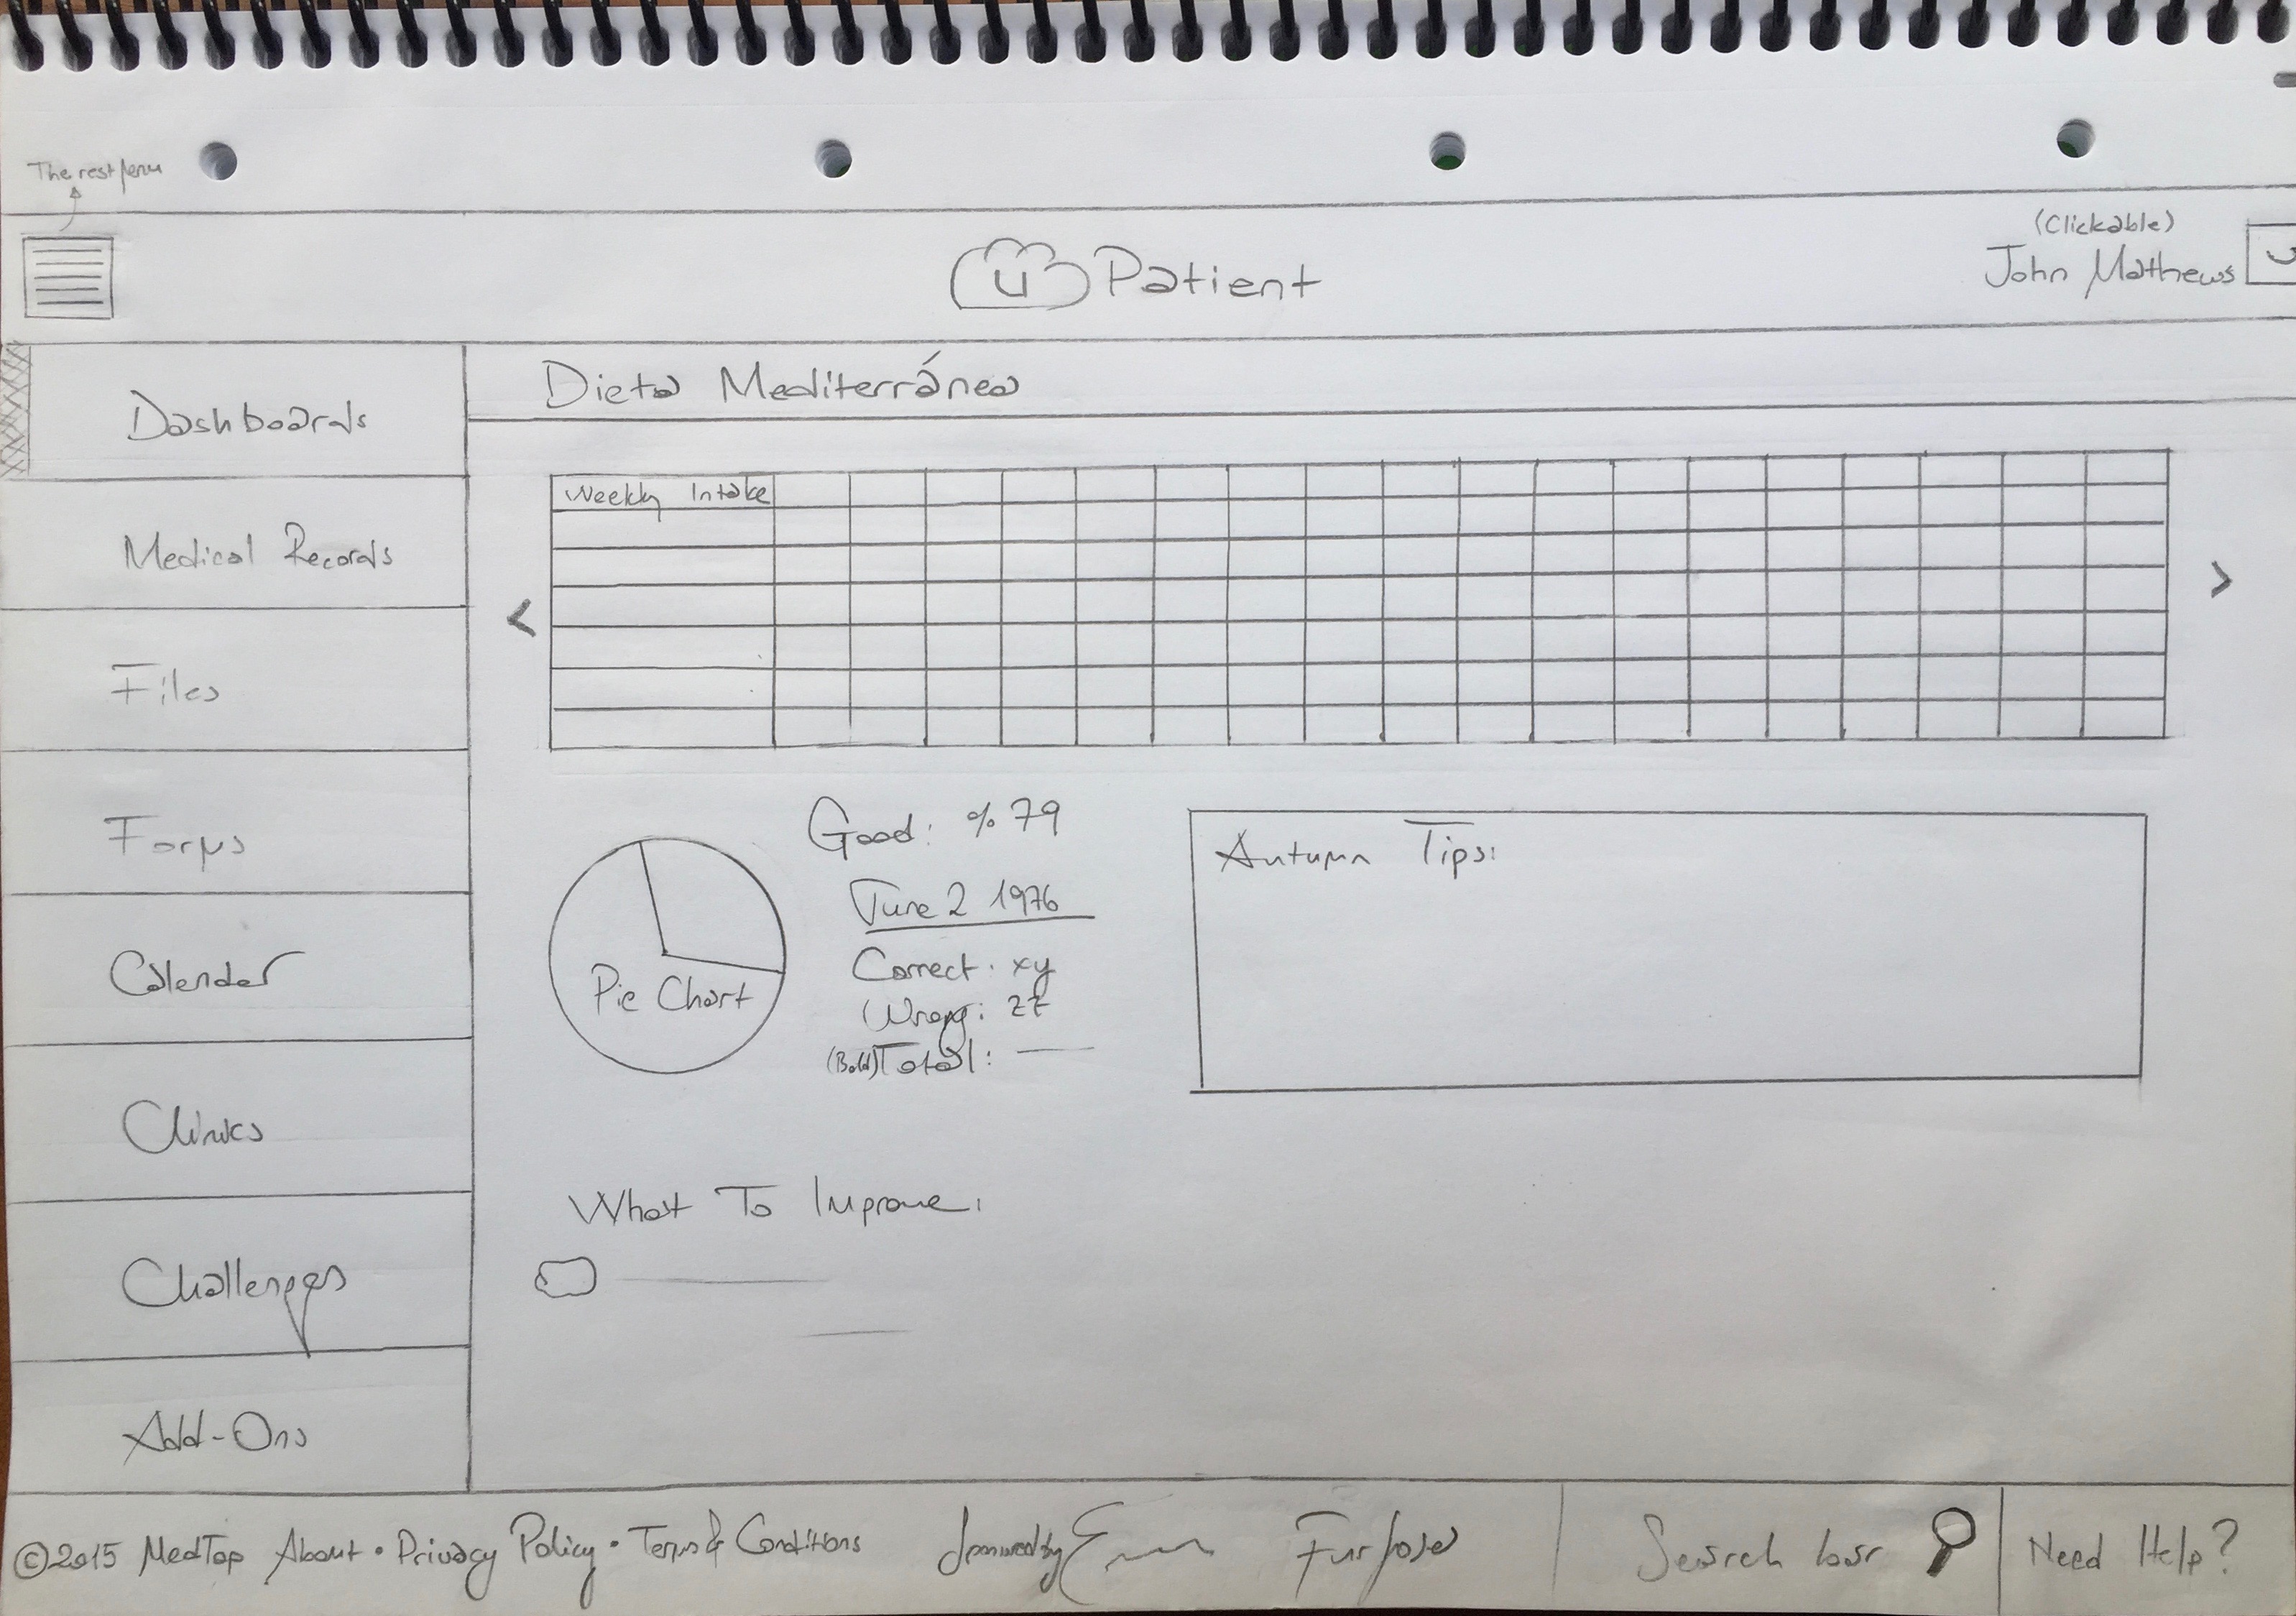 The rest menu
(Clickable)
U Patient
John Mathews
Dieta Mediterránea
Dashboards
Medical Records
Files
Forms
Calender
Clinics
Challenges
Add-Ons
Weekly Intake
<
>
Pie Chart
Good: % 79
June 2 1976
Correct: xy
Wrong: zz
(Bold) Total:
Autumn Tips:
What To Improve:
©2015 MedTap About • Privacy Policy • Terms & Conditions
Sponsored by
Search bar
Need Help?